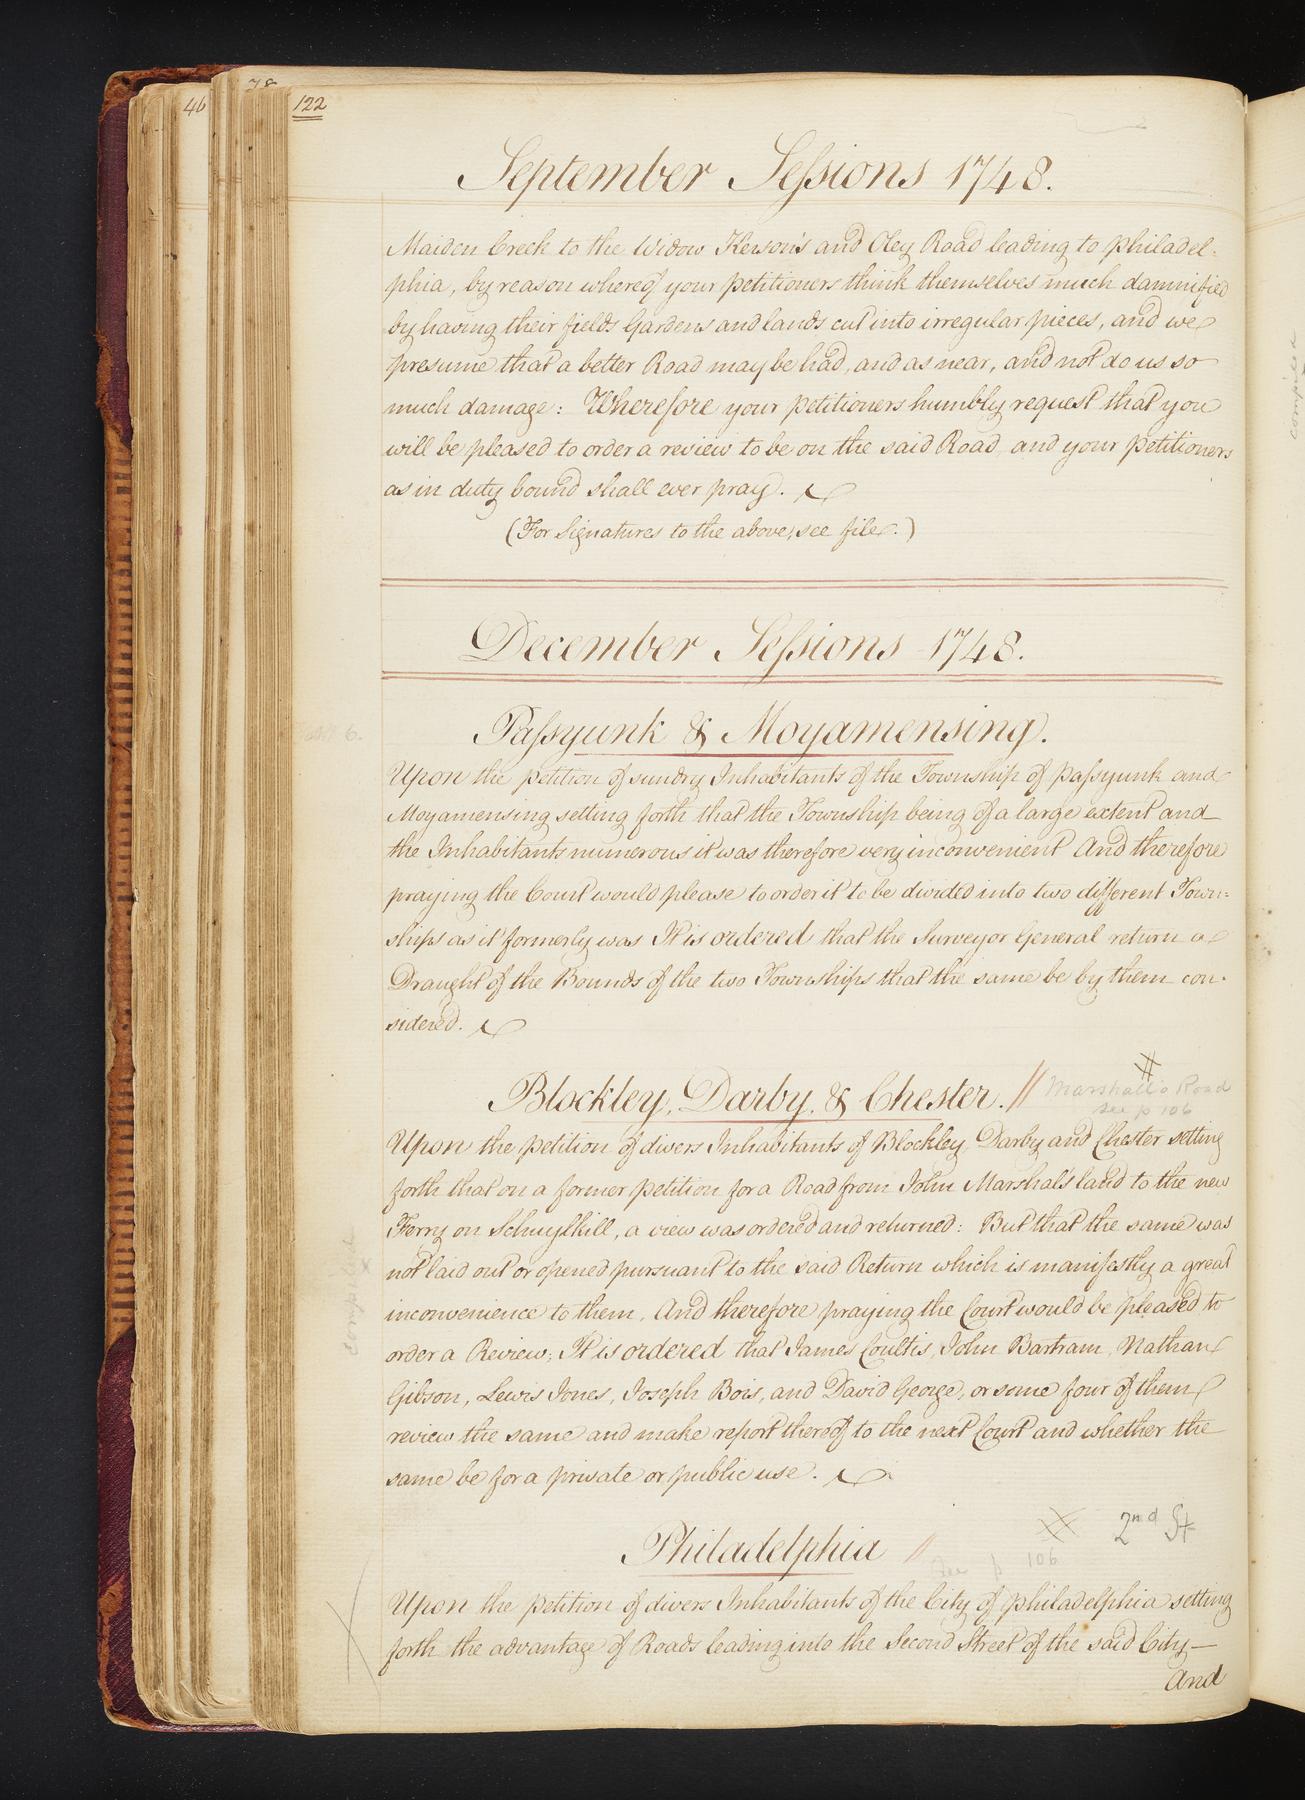 46
78
122
September Sessions 1748.
Maiden Creek to the Widow Kerson's and Oley Road leading to Philadel-
phia, by reason whereof your petitioners think themselves much damnified
by having their fields Gardens and lands cut into irregular pieces, and we
presume that a better Road may be had, and as near, and not do us so
much damage: Wherefore your petitioners humbly request that you
will be pleased to order a review to be on the said Road, and your petitioners
as in duty bound shall ever pray.
(For Signatures to the above, see file.)
December Sessions 1748.
Passyunk & Moyamensing.
Upon the petition of sundry Inhabitants of the Township of Passyunk and
Moyamensing setting forth that the Township being of a large extent and
the Inhabitants numerous it was therefore very inconvenient And therefore
praying the Court would please to order it to be divided into two different Town-
ships as it formerly was It is ordered that the Surveyor General return a
Draught of the Bounds of the two Townships that the same be by them con-
sidered.
Blockley, Darby, & Chester. // #
Marshall's Road
see p 106
Upon the petition of divers Inhabitants of Blockley, Darby and Chester setting
forth that on a former petition for a Road from John Marshal's land to the new
Ferry on Schuylkill, a view was ordered and returned: But that the same was
not laid out or opened pursuant to the said Return which is manifestly a great
inconvenience to them. And therefore praying the Court would be pleased to
order a Review; It is ordered that James Coultis, John Bartram, Nathan
Gibson, Lewis Jones, Joseph Bois, and David George, or some four of them
review the same and make report thereof to the next Court and whether the
same be for a private or public use.
Philadelphia // # 2nd St
See p 106
Upon the petition of divers Inhabitants of the City of Philadelphia setting
forth the advantage of Roads leading into the Second Street of the said City—
And